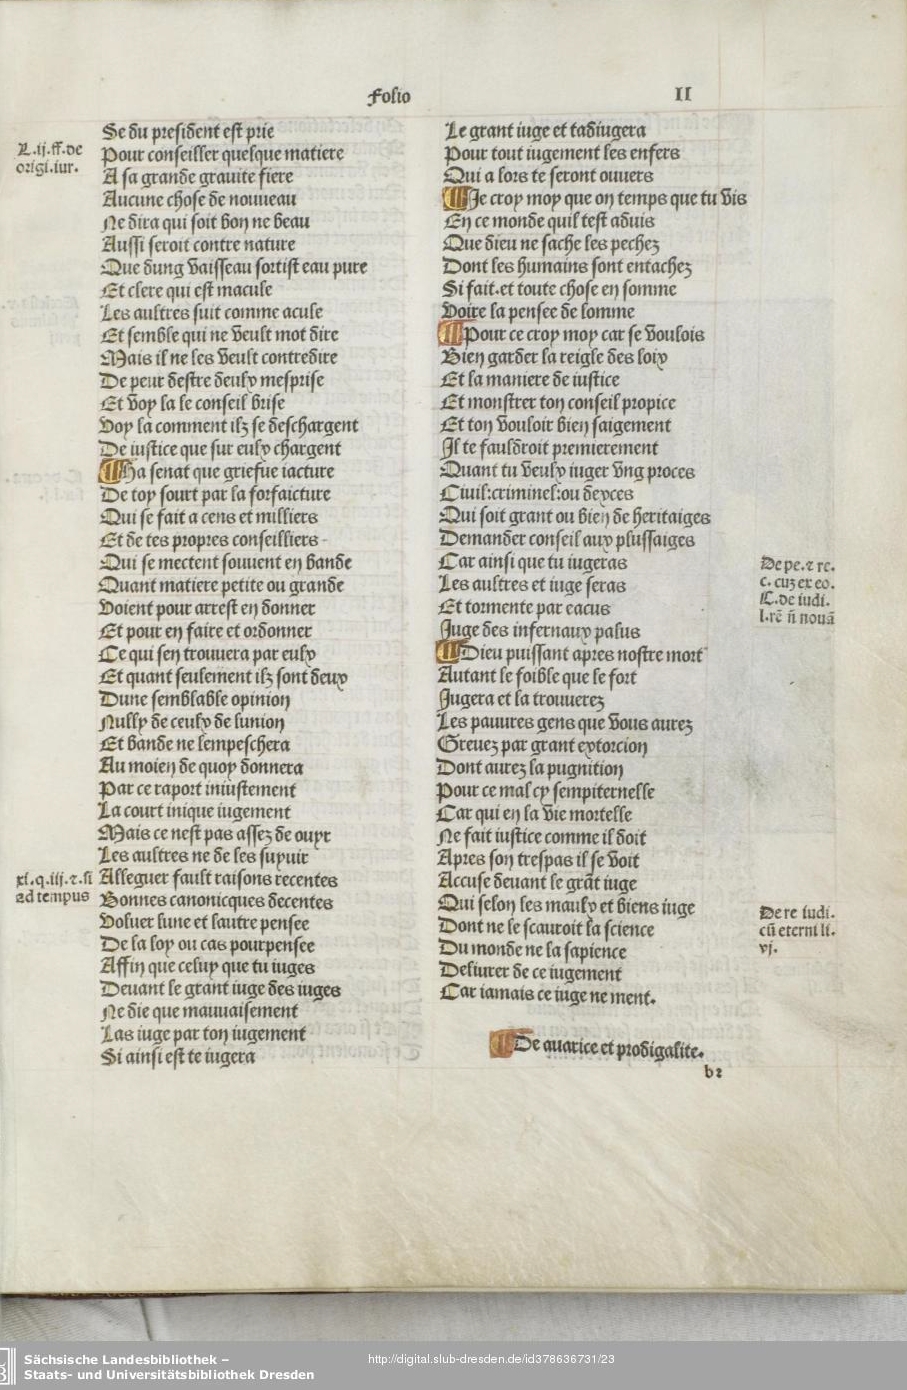 Folio II
Se du president est prie
Pour conseiller quelque matiere
A sa grande gravite fiere
Aucune chose de nouveau
Ne dira qui soit bon ne beau
Aussi seroit contre nature
Que dung vaisseau sortist eau pure
Et clere qui est macule
Les aultres suit comme acule
Et semble qui ne veult mot dire
Mais il ne les veult contredire
De peur destre deulx mesprise
Et voy la le conseil brise
Voy la comment ilz se deschargent
De iustice que sur eulx chargent
Ha senat que griefue iacture
De toy sourt par la forfaicture
Qui se fait a cens et milliers
Et de tes propres conseilliers
Qui se mectent souuent en bande
Quant matiere petite ou grande
Voient pour arrest en donner
Et pour en faire et ordonner
Ce qui sen trouuera par eulx
Et quant seulement ilz sont deux
Dune semblable opinion
Nully de ceulx de lunion
Et bande ne lempeschera
Au moien de quoy donnera
Par ce raport iniustement
La court inique iugement
Mais ce nest pas assez de ouyr
Les aultres ne de les suyuir
Alleguer fault raisons recentes
Bonnes canonicques decentes
Voluer lune et lautre pensee
De la loy ou cas pourpensee
Affin que celuy que tu iuges
Deuant le grant iuge des iuges
Ne die que mauuaisement
Las iuge par ton iugement
Si ainsi est te iugera
L.ij.ff.de
origi.iur.
xi.q.iij.⁊.si
ad tempus
Le grant iuge et tadiugera
Pour tout iugement les enfers
Qui a lors te seront ouuers
Je croy moy que on temps que tu vis
En ce monde quil test aduis
Que dieu ne sache les pechez
Dont les humains sont entachez
Si fait.et toute chose en somme
Voire la pensee de lomme
Pour ce croy moy car se voulois
Bien garder la reigle des loix
Et la maniere de iustice
Et monstrer ton conseil propice
Et ton vouloir bien saigement
Il te fauldroit premierement
Quant tu veulx iuger vng proces
Ciuil:criminel:ou dexces
Qui soit grant ou bien de heritaiges
Demander conseil aux plussaiges
Car ainsi que tu iugeras
Les aultres et iuge seras
Et tormente par eacus
Juge des infernaux palus
Dieu puissant apres nostre mort
Autant le foible que le fort
Jugera et la trouuerez
Les pauures gens que vous aurez
Greuez par grant extorcion
Dont aurez la pugnition
Pour ce mal cy sempiternelle
Car qui en la vie mortelle
Ne fait iustice comme il doit
Apres son trespas il se voit
Accuse deuant le grāt iuge
Qui selon les maulx et biens iuge
Dont ne le scauroit la science
Du monde ne la sapience
Deliurer de ce iugement
Car iamais ce iuge ne ment.
De auarice et prodigalite.
b2
De pe.⁊ re.
c. cuz ex eo.
C.de iudi.
l.rē ñ nouā
De re iudi.
cū eterni li.
vj.
Sächsische Landesbibliothek –
Staats- und Universitätsbibliothek Dresden
http://digital.slub-dresden.de/id378636731/23